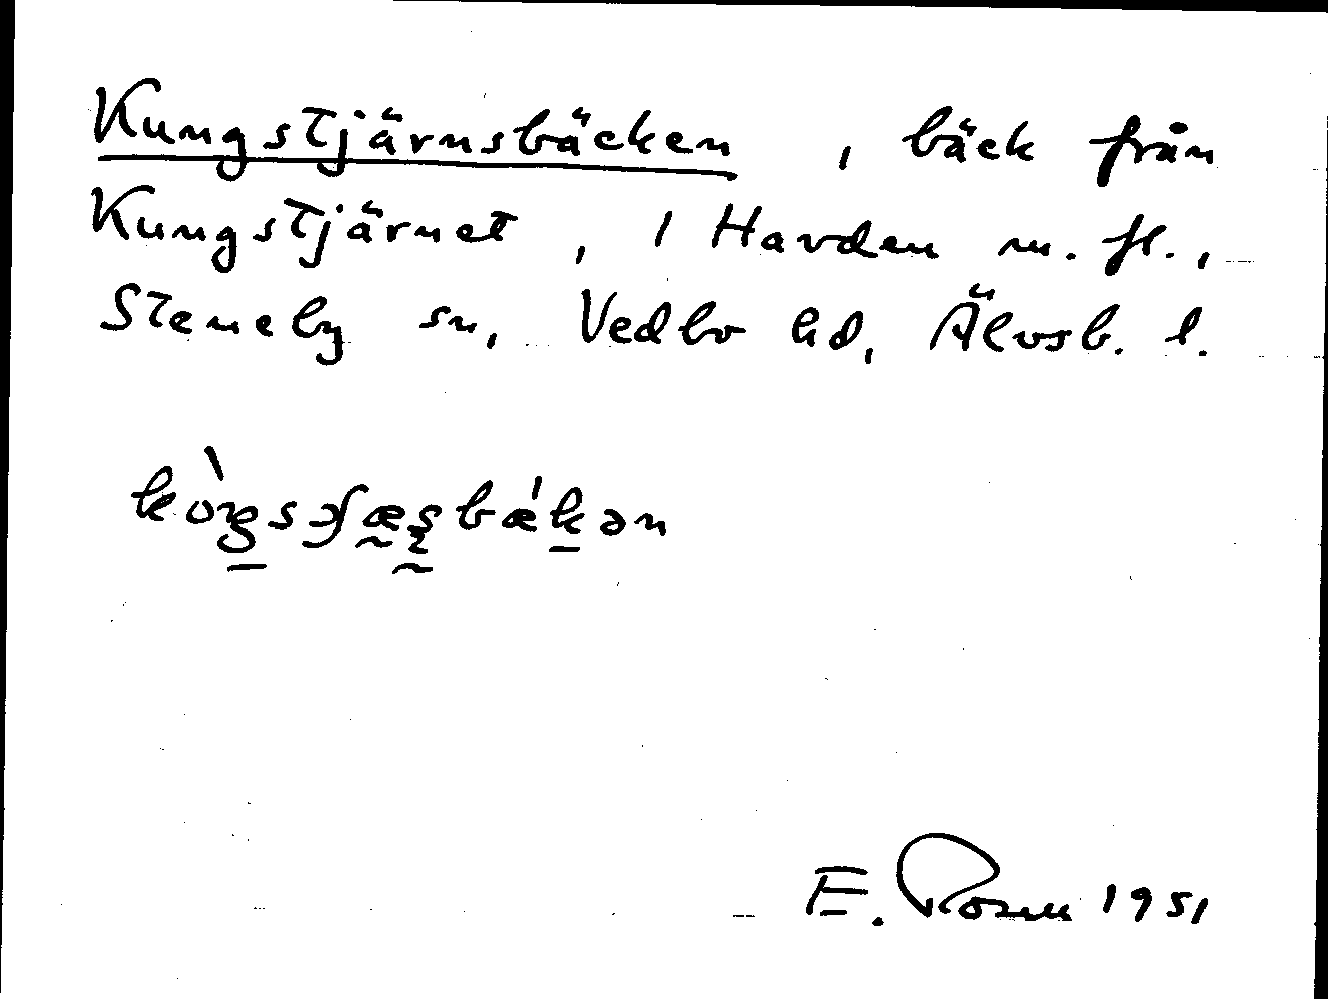 Kungstjärnsbäcken, bäck från
Kungstjärnet, 1 Havden m. fl.,
Steneby sn, Vedbo hd, Älvsb. l.
E. Rosen 1951